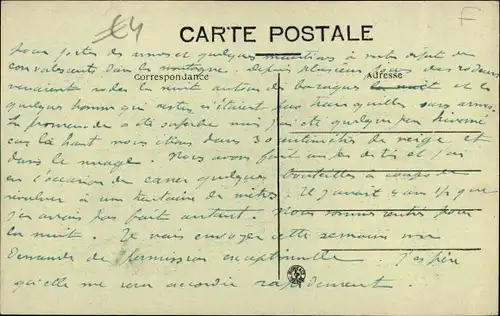 CARTE POSTALE
pour porter des armes et quelques munitions à notre dépôt de
convalescents dans la montagne. Depuis plusieurs jours des rodeurs
Correspondance
Adresse
venaient roder la nuit autour des baraques la nuit et les
quelques hommes qui restes n'étaient plus tranquilles sans armes.
La promenade a été superbe mais j'ai été quelque peu
car là haut nous étions dans 30 centimètres de neige et
dans le nuage. Nous avons fait un de tir et j'ai
eu l'occasion de casser quelques bouteilles à coups de
révolver à une trentaine de mètres. Il y avait 4 ans 1/2 que
je n'avais pas fait autant. Nous sommes rentrés pour
la nuit. Je vais envoyer cette semaine une
demande de permission exceptionnelle. J'espère
qu'elle me sera accordée rapidement.